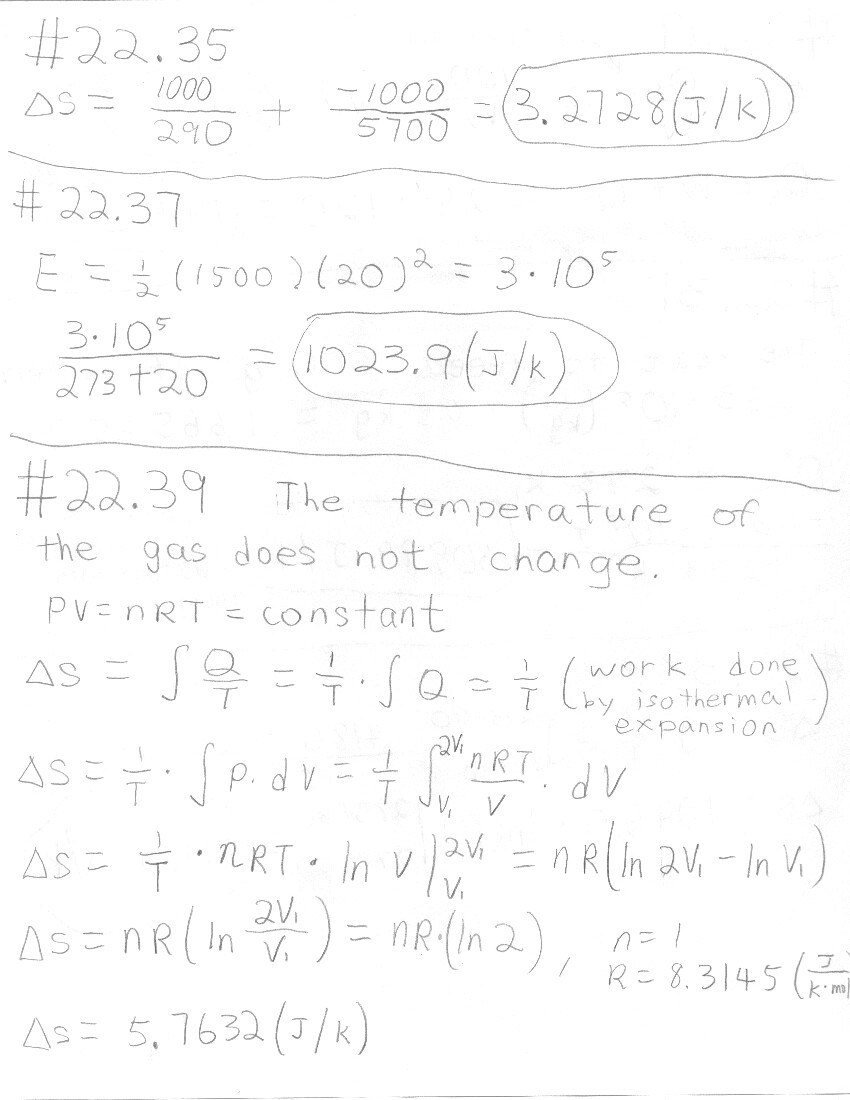 #22.35
ΔS = 1000/290 + -1000/5700 = 3.2728 (J/K)
# 22.37
E = 1/2 (1500)(20)² = 3·10⁵
3·10⁵/273+20 = 1023.9 (J/K)
#22.39 The temperature of
the gas does not change.
PV = nRT = constant
ΔS = ∫ Q/T = 1/T · ∫ Q = 1/T (work done
by isothermal
expansion)
ΔS = 1/T · ∫ P. dV = 1/T ∫_{V₁}^{2V₁} nRT/V · dV
ΔS = 1/T · nRT · ln V |_{V₁}^{2V₁} = nR(ln 2V₁ - ln V₁)
ΔS = nR(ln 2V₁/V₁) = nR·(ln 2), n = 1
R = 8.3145 (J/K·mol
ΔS = 5.7632 (J/K)